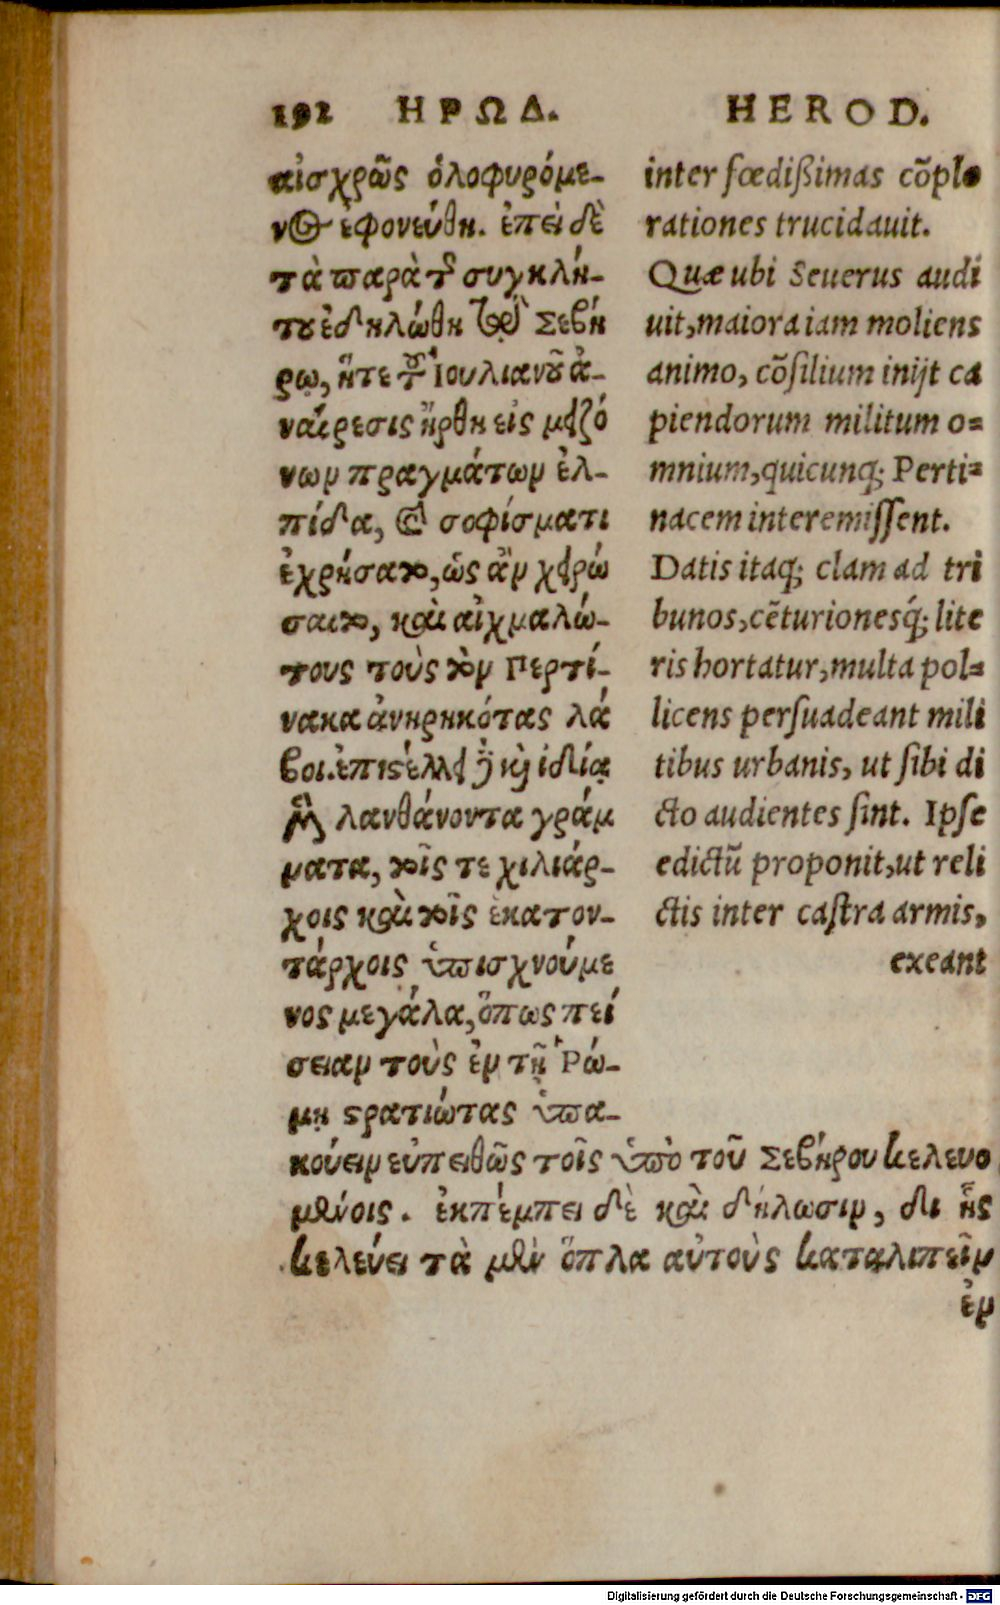 192 ΗΡΩΔ. HEROD.
αἰσχρῶς ὀλοφυρόμε-
νος ἐφονεύθη. ἐπεὶ δὲ
τὰ παρὰ τῆς συγκλή-
του ἐδηλώθη τῷ Σεβή
ρῳ, ἥτε τοῦ Ἰουλιανοῦ ἀ-
ναίρεσις ἤρθη εἰς μειζό
νων πραγμάτων ἐλ-
πίδα, καὶ σοφίσματι
ἐχρήσατο, ὡς ἂν χειρώ
σαιτο, καὶ αἰχμαλώ-
τους τοὺς τὸν Περτί-
νακα ἀνῃρηκότας λά
βοι. ἐπιστέλλει
λανθάνοντα γράμ
ματα, τοῖς τε χιλιάρ-
χοις καὶ τοῖς ἑκατον-
τάρχοις, ὑπισχνούμε
νος μεγάλα, ὅπως πεί
σειαν τοὺς ἐν τῇ Ῥώ-
μῃ στρατιώτας ὑπα-
κούειν εὐπειθῶς τοῖς ὑπὸ τοῦ Σεβήρου κελευο
μένοις. ἐκπέμπει δὲ καὶ δήλωσιν, δι ἧς
κελεύει τὰ μὲν ὅπλα αὐτοὺς καταλιπεῖν
ἐν
inter fœdißimas cõplo
rationes trucidauit.
Quæ ubi Seuerus audi
uit, maiora iam moliens
animo, cõsilium inijt ca
piendorum militum o=
mnium, quicunq; Perti=
nacem interemissent.
Datis itaq; clam ad tri
bunos, cẽturionesq́; lite
ris hortatur, multa pol=
licens persuadeant mili
tibus urbanis, ut sibi di
cto audientes sint. Ipse
edictũ proponit, ut reli
ctis inter castra armis,
exeant
Digitalisierung gefördert durch die Deutsche Forschungsgemeinschaft - DFG